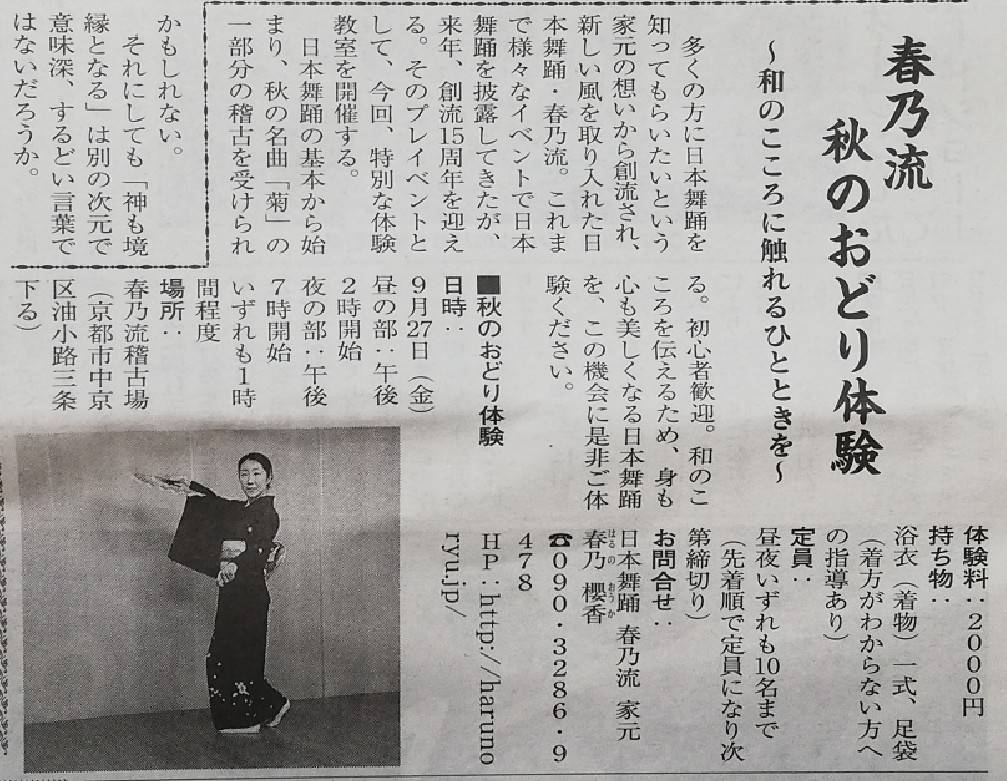 春乃流
秋のおどり体験
～和のこころに触れるひとときを～
多くの方に日本舞踊を
知ってもらいたいという
家元の想いから創流され、
新しい風を取り入れた日
本舞踊・春乃流。これま
で様々なイベントで日本
舞踊を披露してきたが、
来年、創流15周年を迎え
る。そのプレイベントと
して、今回、特別な体験
教室を開催する。
日本舞踊の基本から始
まり、秋の名曲「菊」の
一部分の稽古を受けられ
る。初心者歓迎。和のこ
ころを伝えるため、身も
心も美しくなる日本舞踊
を、この機会に是非ご体
験ください。
■秋のおどり体験
日時：
9月27日（金）
昼の部：午後
2時開始
夜の部：午後
7時開始
いずれも1時
間程度
場所：
春乃流稽古場
（京都市中京
区油小路三条
下る）
体験料：2000円
持ち物：
浴衣（着物）一式、足袋
（着方がわからない方へ
の指導あり）
定員：
昼夜いずれも10名まで
（先着順で定員になり次
第締切り）
お問合せ：
日本舞踊 春乃流 家元
はるの おうか
春乃 櫻香
☎090・3286・9
478
HP：http://haruno
ryu.jp/
かもしれない。
それにしても「神も境
縁となる」は別の次元で
意味深、するどい言葉で
はないだろうか。